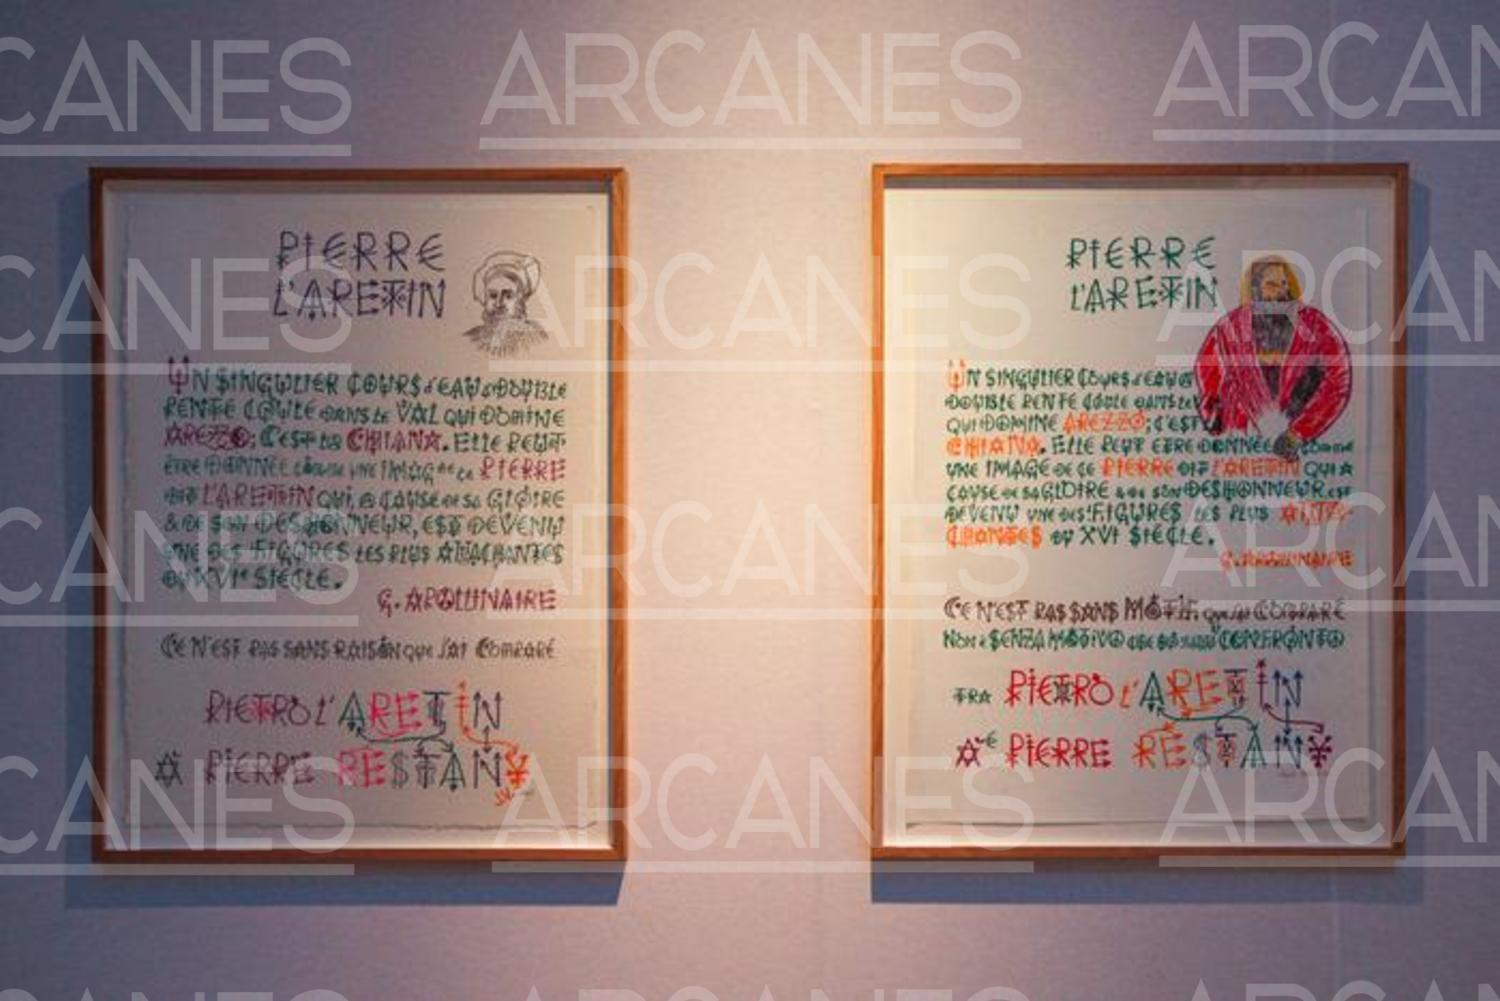 PIERRE
L'ARETIN
UN SINGULIER COURS d'EAU à DOUBLE
PENTE COULE DANS LE VAL QUI DOMINE
AREZZO; C'EST LA CHIANA. ELLE PEUT
ÊTRE DONNÉE COMME UNE IMAGE DE CE PIERRE
DIT L'ARETIN QUI, à CAUSE DE SA GLOIRE
& DE SON DESHONNEUR, EST DEVENU
UNE DES FIGURES LES PLUS ATTACHANTES
DU XVIe SIÈCLE.
G. APOLLINAIRE
CE N'EST PAS SANS RAISON QUE J'AI COMPARÉ
PIETRO L'ARETIN
À PIERRE RESTANY
PIERRE
L'ARETIN
UN SINGULIER COURS d'EAU à
DOUBLE PENTE COULE DANS LE
QUI DOMINE AREZZO; C'EST
CHIANA. ELLE PEUT ETRE DONNÉE COMME
UNE IMAGE DE CE PIERRE DIT L'ARETIN QUI à
CAUSE DE SA GLOIRE & DE SON DESHONNEUR, EST
DEVENU UNE DES FIGURES LES PLUS ATTA-
CHANTES DU XVI SIÈCLE.
G. APOLLINAIRE
CE N'EST PAS SANS MOTIF que j'ai COMPARÉ
NON è SENZA MOTIVO CHE CONFRONTO
TRA PIETRO L'ARETIN
À E PIERRE RESTANY
ARCANES